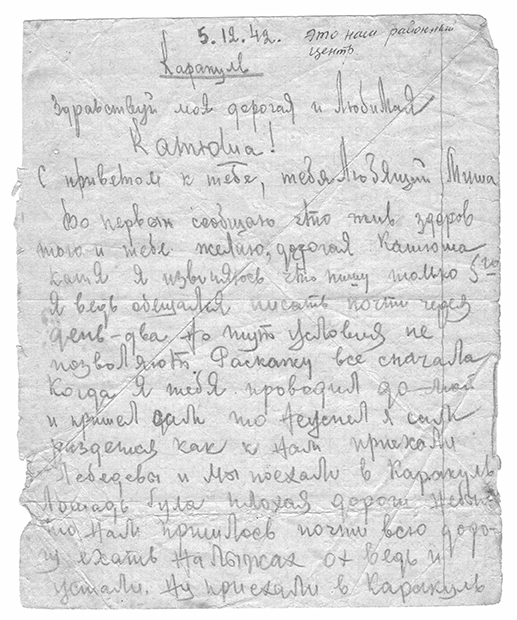 5.12.42.
Это нам районный
центр.
Каракуль
Здравствуй моя дорогая и Любимая
Катюша!
С приветом к тебе, тебя Любящий Миша
Во первых сообщаю что жив здоров
того и тебе желаю, дорогая Катюша
катя я извиняюсь что пишу только 5го
Я ведь обещался писать почти через
день-два но тут условия не
позволяют. Раскажу все сначала
Когда я тебя проводил до
и пришел то неуспел я сам
раздется как к нам приехали
Лебедевы и мы поехали в Каракуль
Лошадь была плохая дороги
то нам пришлось почти всю доро-
гу ехать на лыжах ох ведь и
устали. Ну приехали в Каракуль